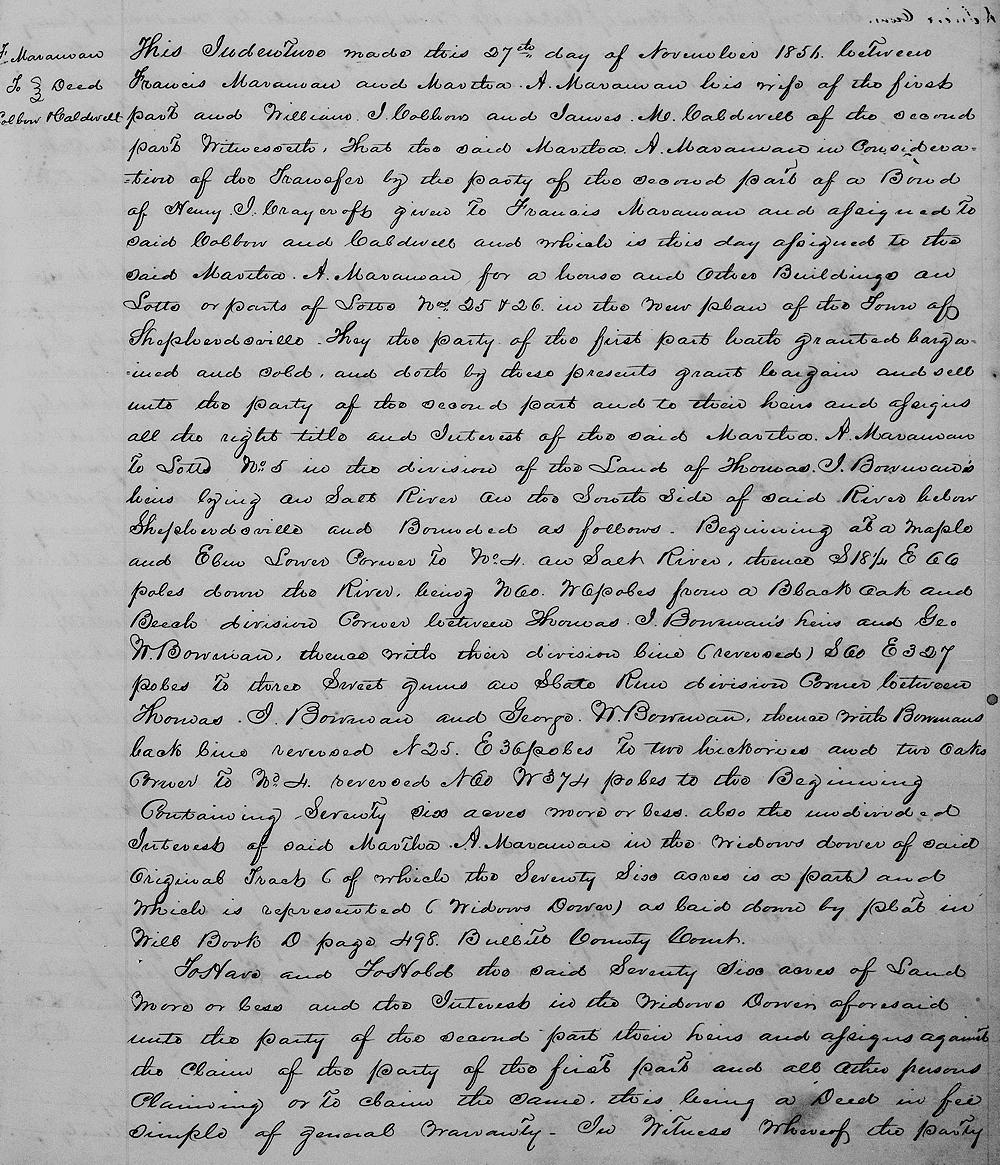 F. Maraman
To } Deed
Colbow & Caldwell
This Indenture made this 27th day of November 1856. between
Francis Maraman and Martha. A. Maraman his wife of the first
part and William. J. Colbow and James. M. Caldwell of the second
part Witnesseth, That the said Martha. A. Maraman in Considera-
-tion of the Transfer by the party of the second part of a Bond
of Henry. J. Craycroft given to Francis Maraman and assigned to
said Colbow and Caldwell and which is this day assigned to the
said Martha. A. Maraman for a house and Other Buildings on
Lotts or parts of Lotts Nos. 25 & 26. in the New plan of the Town of
Shepherdsville. They the party of the first part hath granted barga-
-ined and sold, and doth by these presents grant bargain and sell
unto the party of the second part and to their heirs and assigns
all the right title and Interest of the said Martha. A. Maraman
to Lotts No. 5 in the division of the Land of Thomas. J. Bowman's
heirs lying on Salt River on the South Side of said River below
Shepherdsville and Bounded as follows. Beginning at a Maple
and Elm Lower Corner to No. 4. on Salt River, thence S 18¼ E 66
poles down the River, being N 60. W 6 poles from a Black Oak and
Beech division Corner between Thomas. J. Bowman's heirs and Geo
W. Bowman, thence with their division line (reversed) S 60 E 327
poles to three Sweet gums on Slate Run division Corner between
Thomas. J. Bowman and George. W. Bowman, thence with Bowmans
back line reversed N 25. E 36 poles to two hickories and two Oaks
Corner to No. 4. reversed N 60 W 374 poles to the Beginning
Containing Seventy Six acres more or less. also the undivided
Interest of said Martha. A. Maraman in the Widows dower of said
Original Tract (of which the Seventy Six acres is a part) and
Which is represented (Widows Dower) as laid down by plat in
Will Book D page 498. Bullitt County Court.
To Have and To Hold the said Seventy Six acres of Land
More or less and the Interest in the Widows Dower, aforesaid
unto the party of the second part their heirs and assigns against
the Claim of the party of the first part and all Other persons
Claiming or to claim the same. this being a Deed in fee
simple of general Warranty- In Witness Whereof the party